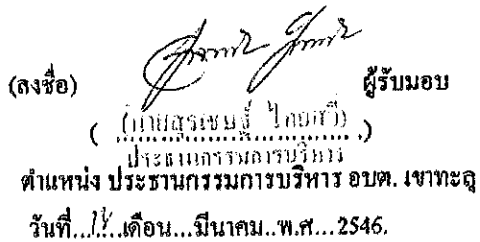 (ลงชื่อ) ผู้รับมอบ
(นายสุรเชษฐ์ ไกยสวี)
ประธานกรรมการบริหาร
ตำแหน่ง ประธานกรรมการบริหาร อบต. เขาทะลุ
วันที่.....เดือน...มีนาคม..พ.ศ...2546.